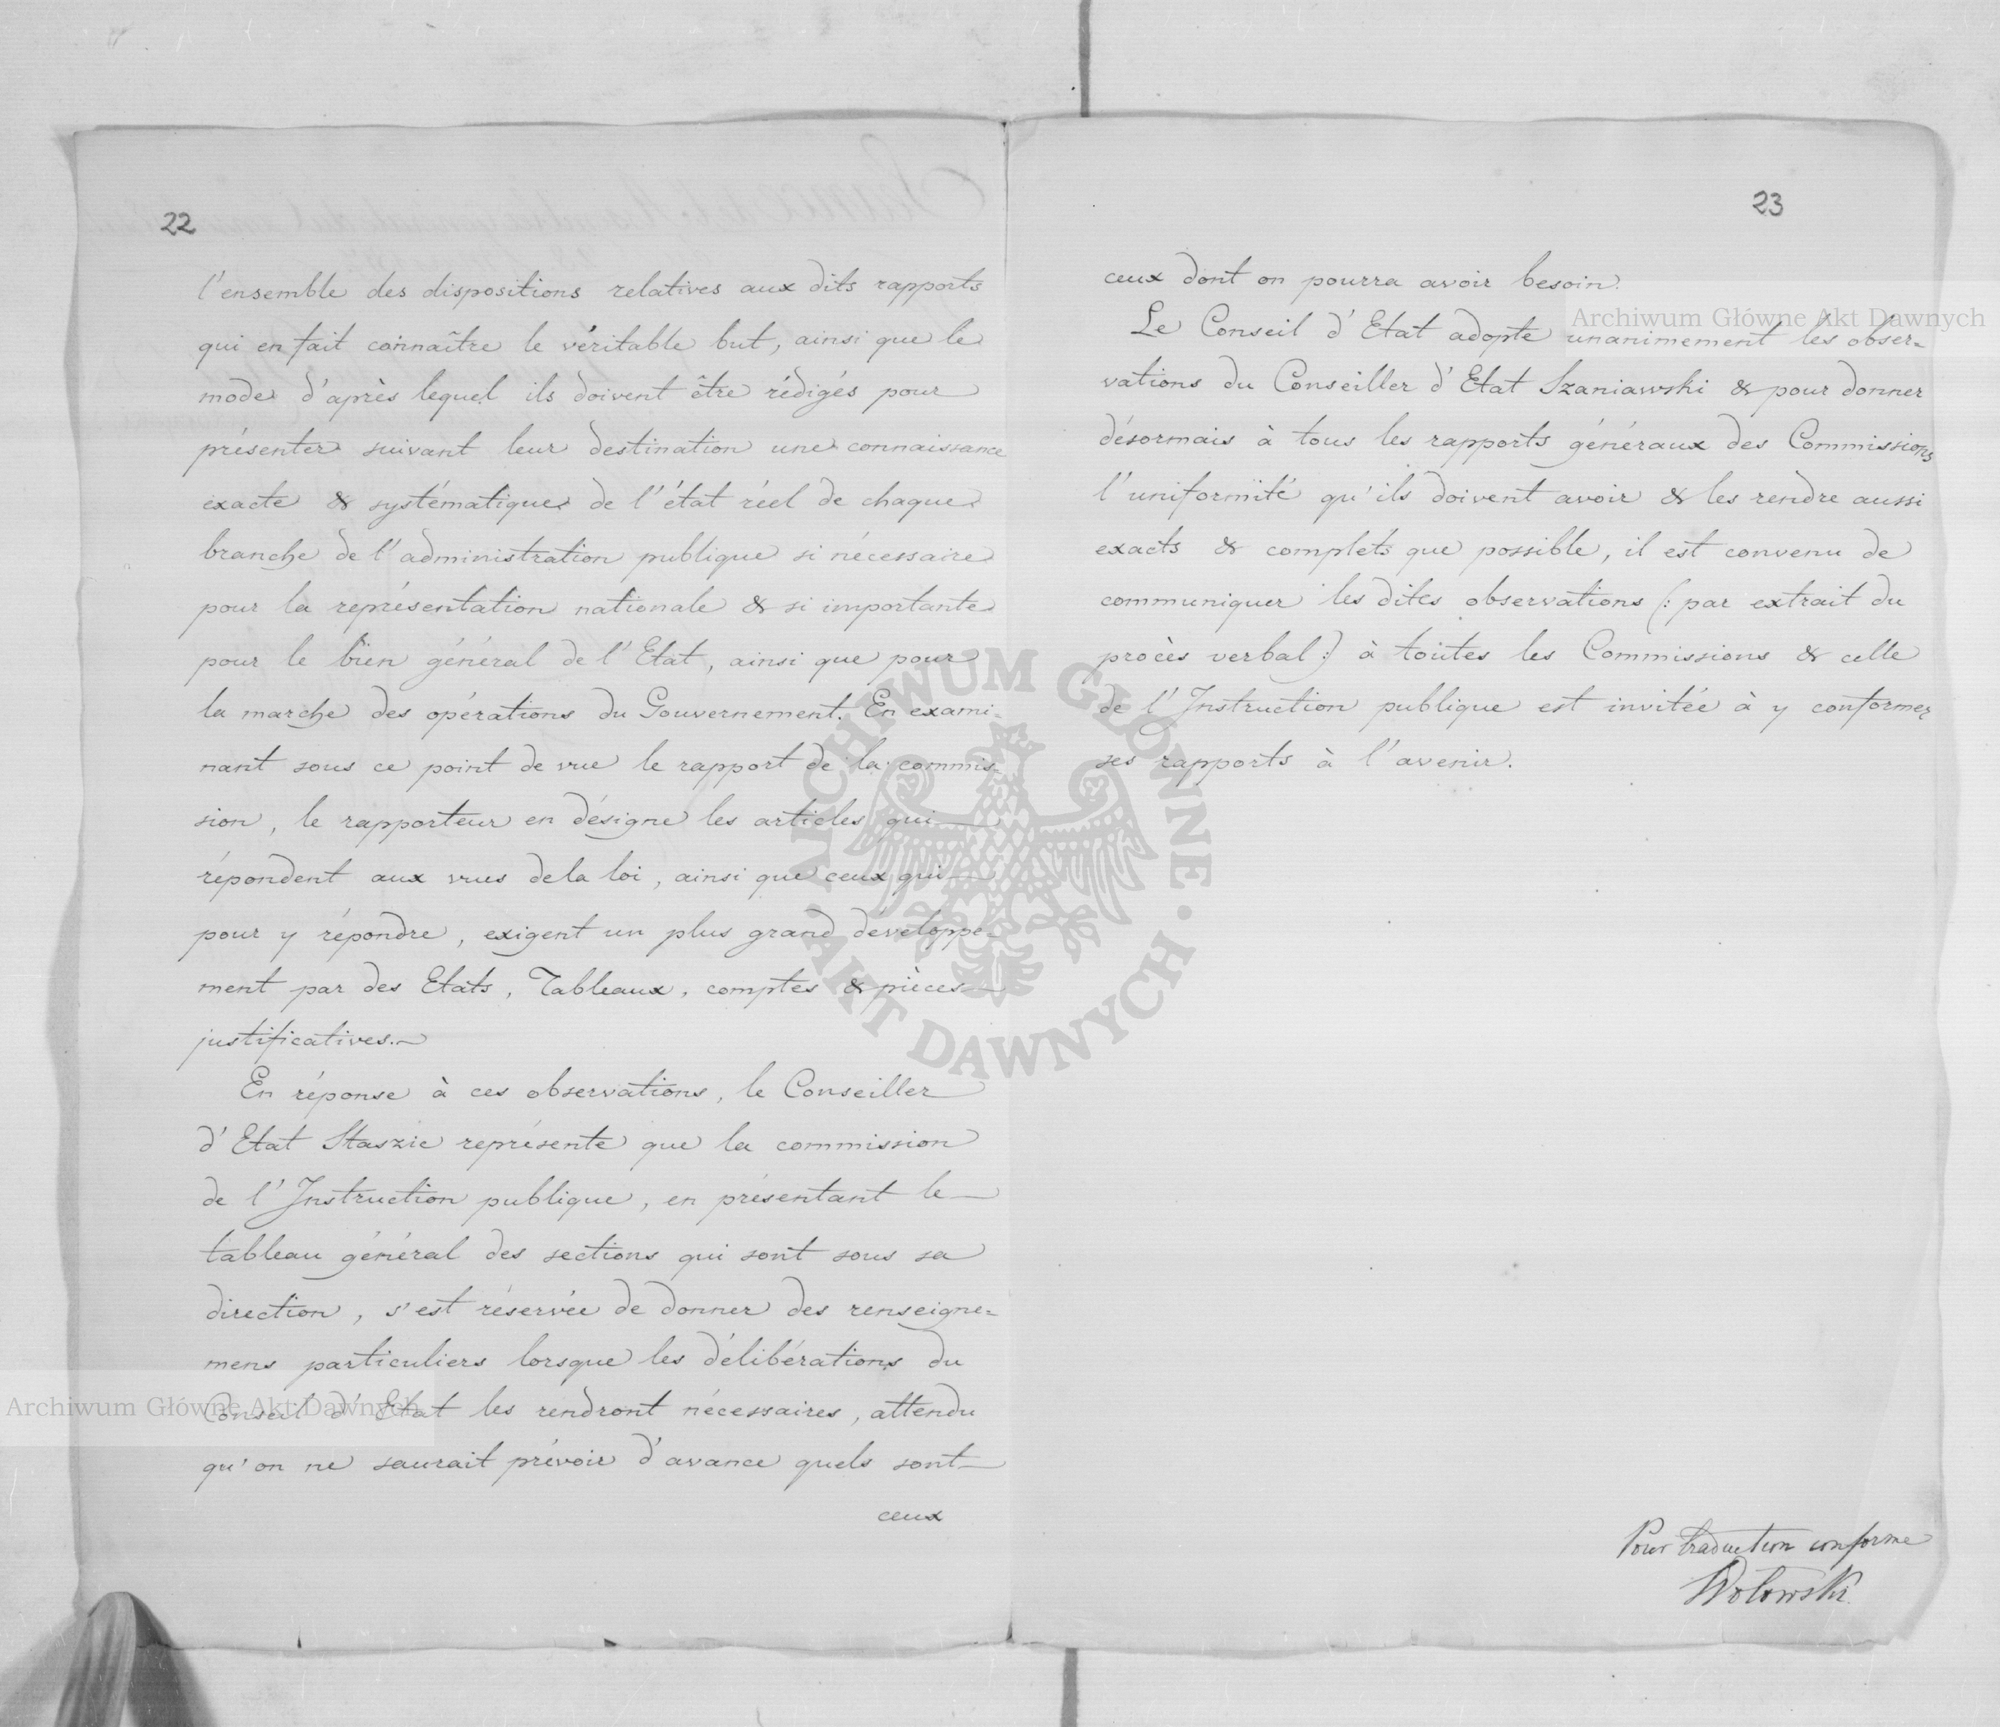 22
l'ensemble des dispositions relatives aux dits rapports
qui en fait connaître le véritable but, ainsi que le
mode d'après lequel ils doivent être rédigés pour
présenter suivant leur destination une connaissance
exacte & systématique de l'état réel de chaque
branche de l'administration publique si nécessaire
pour la représentation nationale & si importante
pour le bien général de l'Etat, ainsi que pour
la marche des opérations du Gouvernement. En exami-
nant sous ce point de vue le rapport de la commis-
sion, le rapporteur en désigne les articles qui
répondent aux vues de la loi, ainsi que ceux qui
pour y répondre, exigent un plus grand développe-
ment par des Etats, Tableaux, comptes & pièces
justificatives.
En réponse à ces observations, le Conseiller
d'Etat Staszic représente que la commission
de l'Instruction publique, en présentant le
tableau général des sections qui sont sous sa
direction, s'est réservée de donner des renseigne=
mens particuliers lorsque les délibérations du
Conseil d'Etat les rendront nécessaires, attendu
qu'on ne saurait prévoir d'avance quels sont
ceux
23
ceux dont on pourra avoir besoin.
Le Conseil d'Etat adopte unanimement les obser=
vations du Conseiller d'Etat Szaniawski & pour donner
désormais à tous les rapports généraux des Commissions
l'uniformité qu'ils doivent avoir & les rendre aussi
exacts & complets que possible, il est convenu de
communiquer les dites observations (: par extrait du
procès verbal :) à toutes les Commissions & celle
de l'Instruction publique est invitée à y conformer
ses rapports à l'avenir.
Pour traduction conforme
Wołowski.
Archiwum Główne Akt Dawnych
Archiwum Główne Akt Dawnych
ARCHIWUM GŁÓWNE · AKT DAWNYCH ·